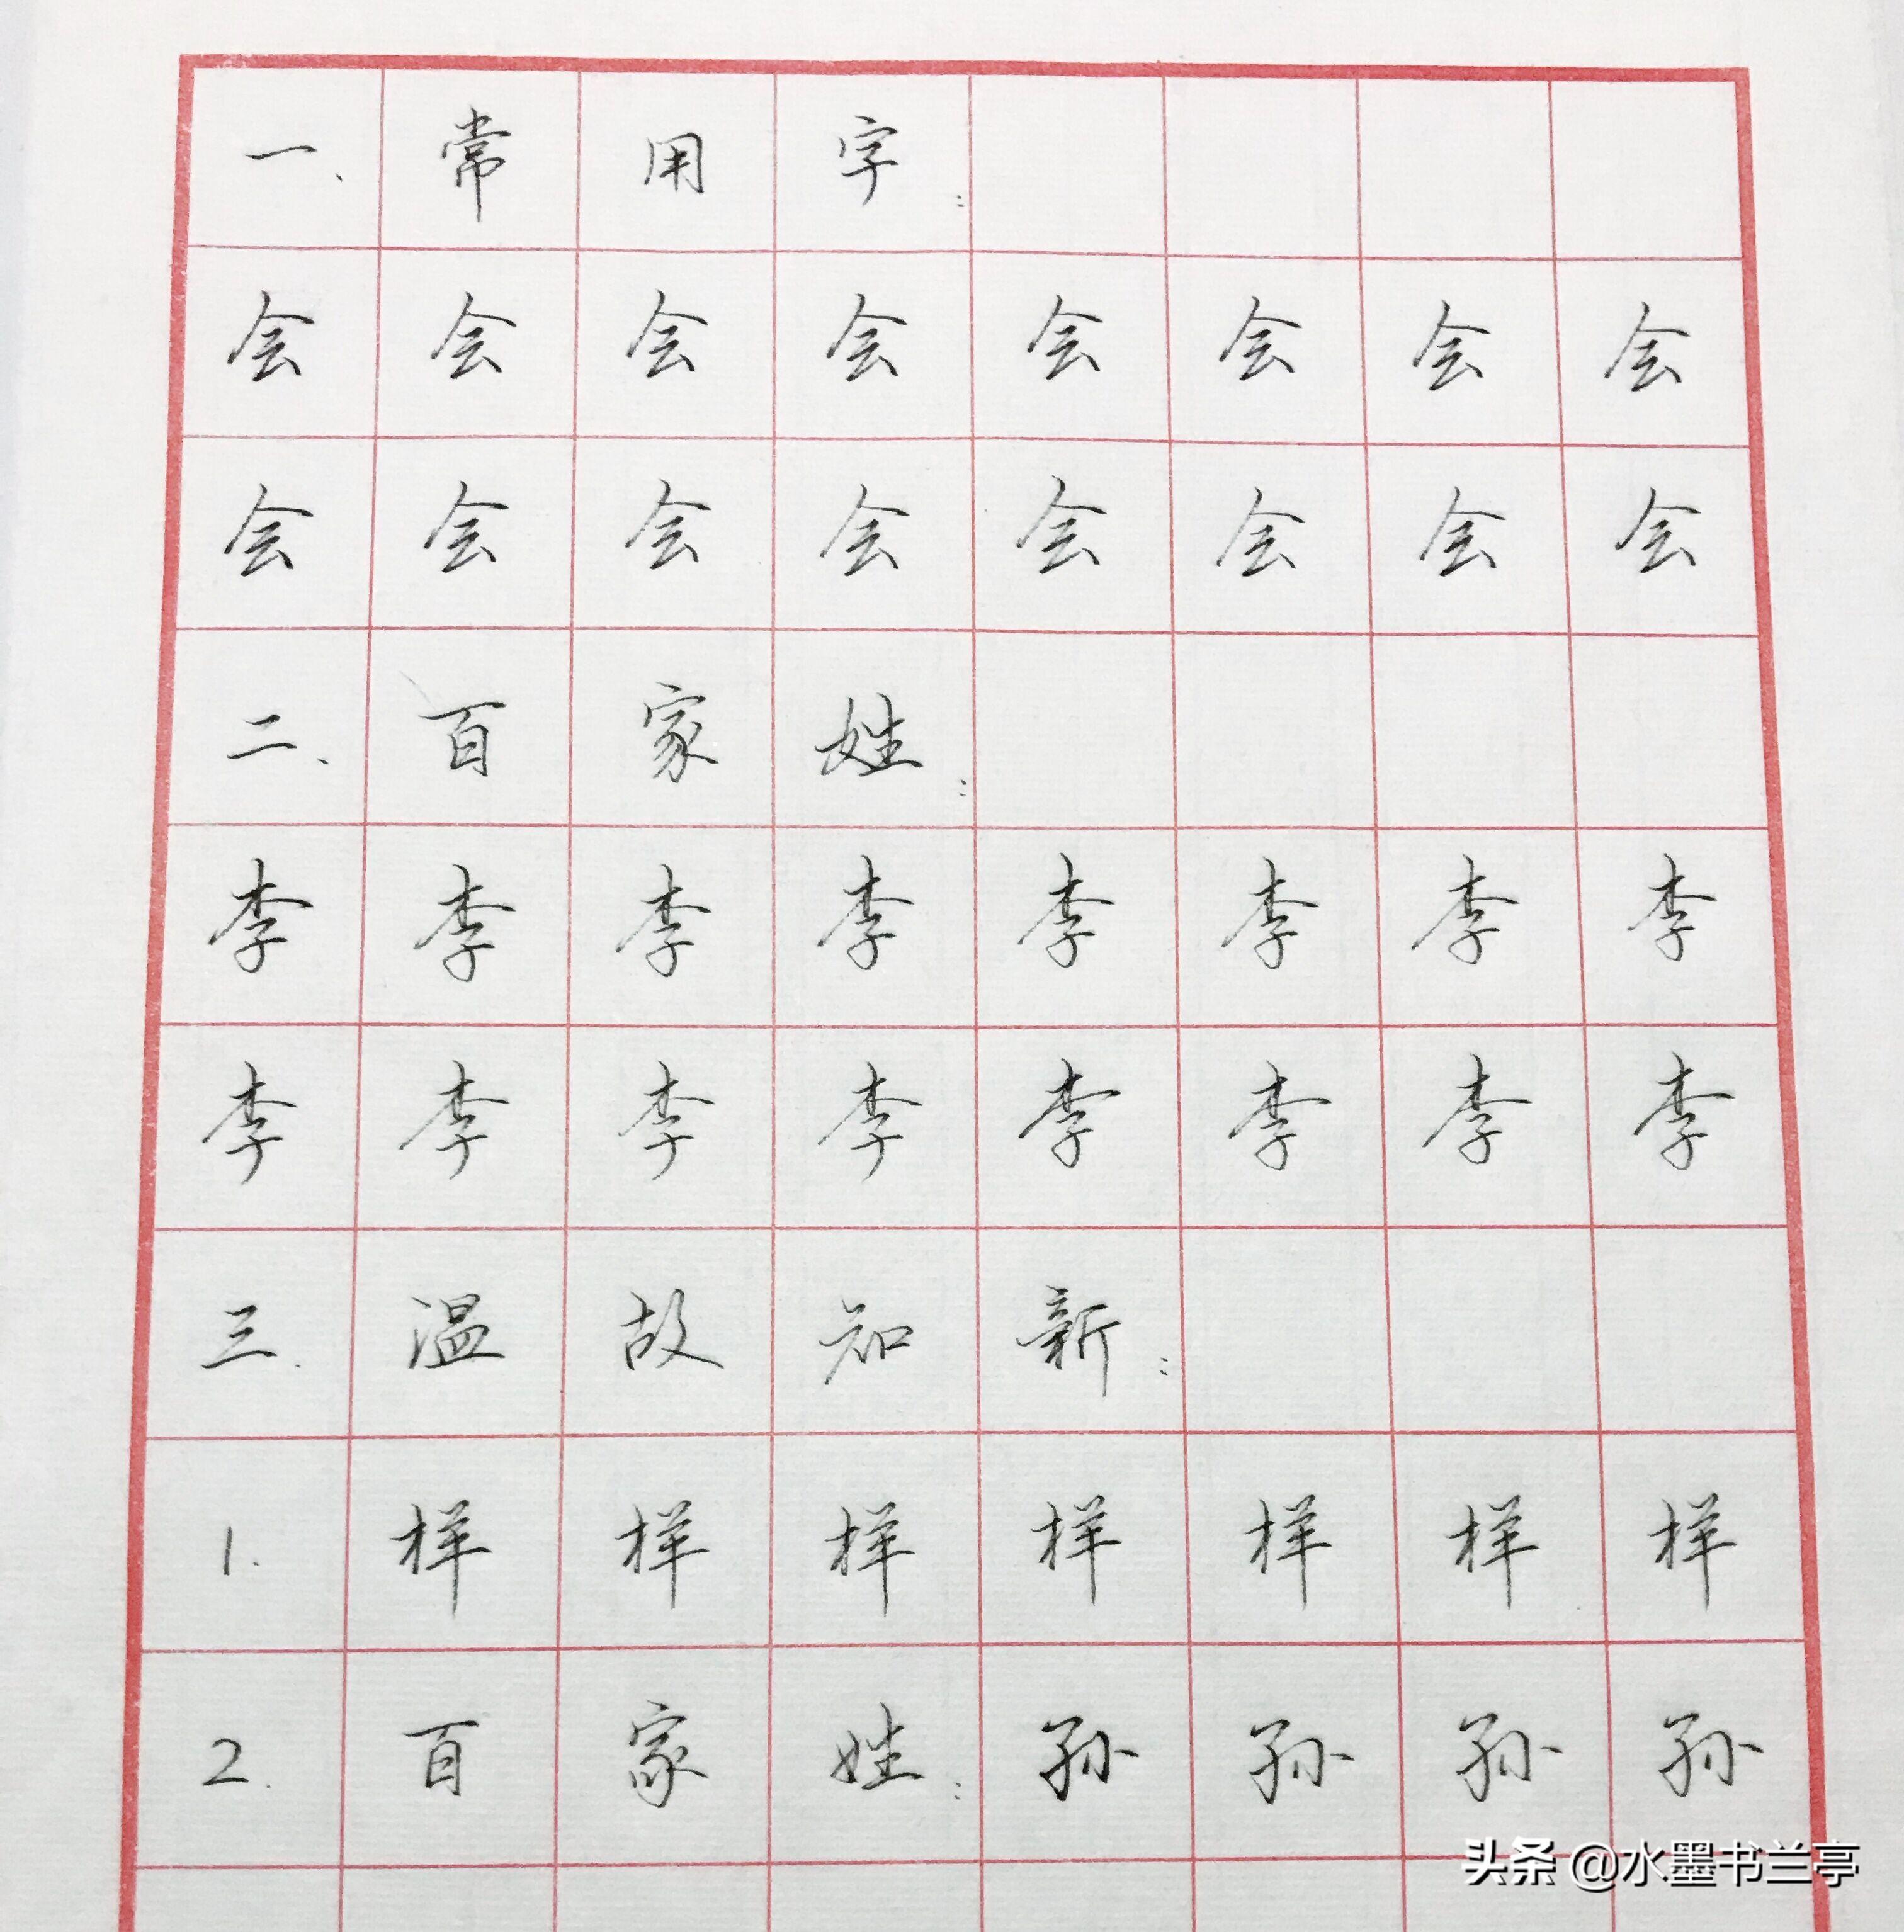 一、常用字：
会会会会会会会会
会会会会会会会会
二、百家姓：
李李李李李李李李
李李李李李李李李
三、温故知新：
1.样样样样样样样
2.百家姓：孙孙孙孙
头条 @水墨书兰亭